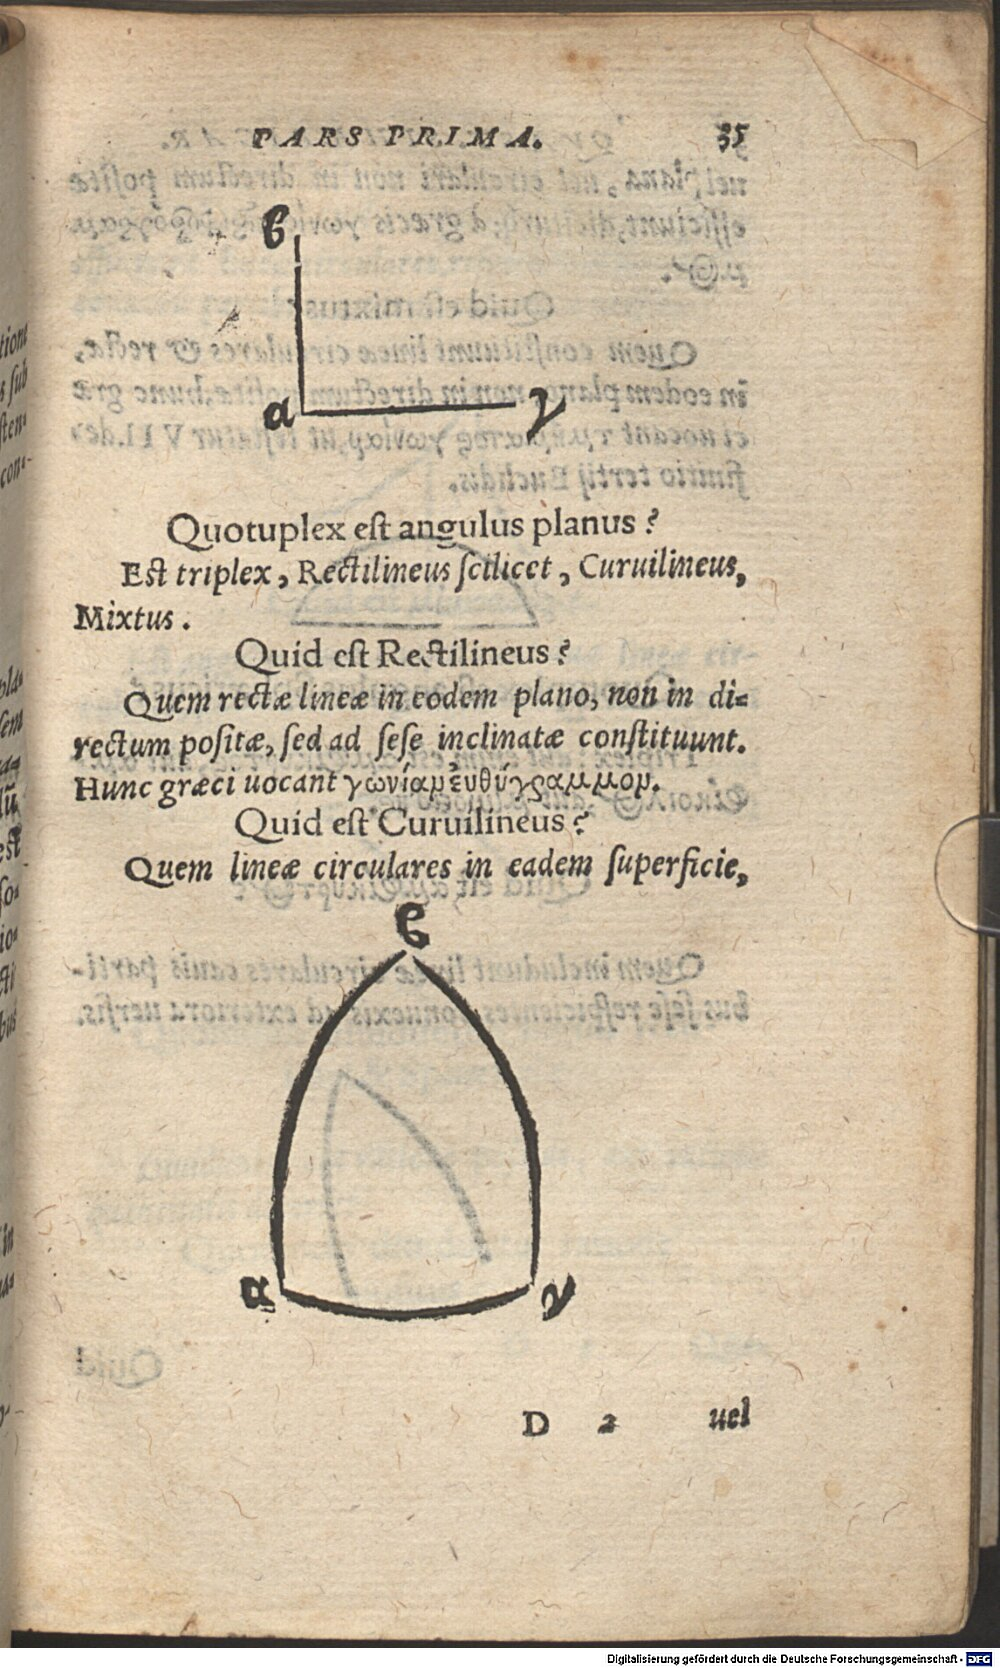 PARS PRIMA. 35
β
α γ
Quotuplex est angulus planus?
Est triplex, Rectilineus scilicet, Curuilineus,
Mixtus.
Quid est Rectilineus?
Quem rectæ lineæ in eodem plano, non in di=
rectum positæ, sed ad sese inclinatæ constituunt.
Hunc græci uocant γωνίαμ ἐυθύγραμμομ.
Quid est Curuilineus?
Quem lineæ circulares in eadem superficie,
β
α γ
D 2 uel
Digitalisierung gefördert durch die Deutsche Forschungsgemeinschaft - DFG